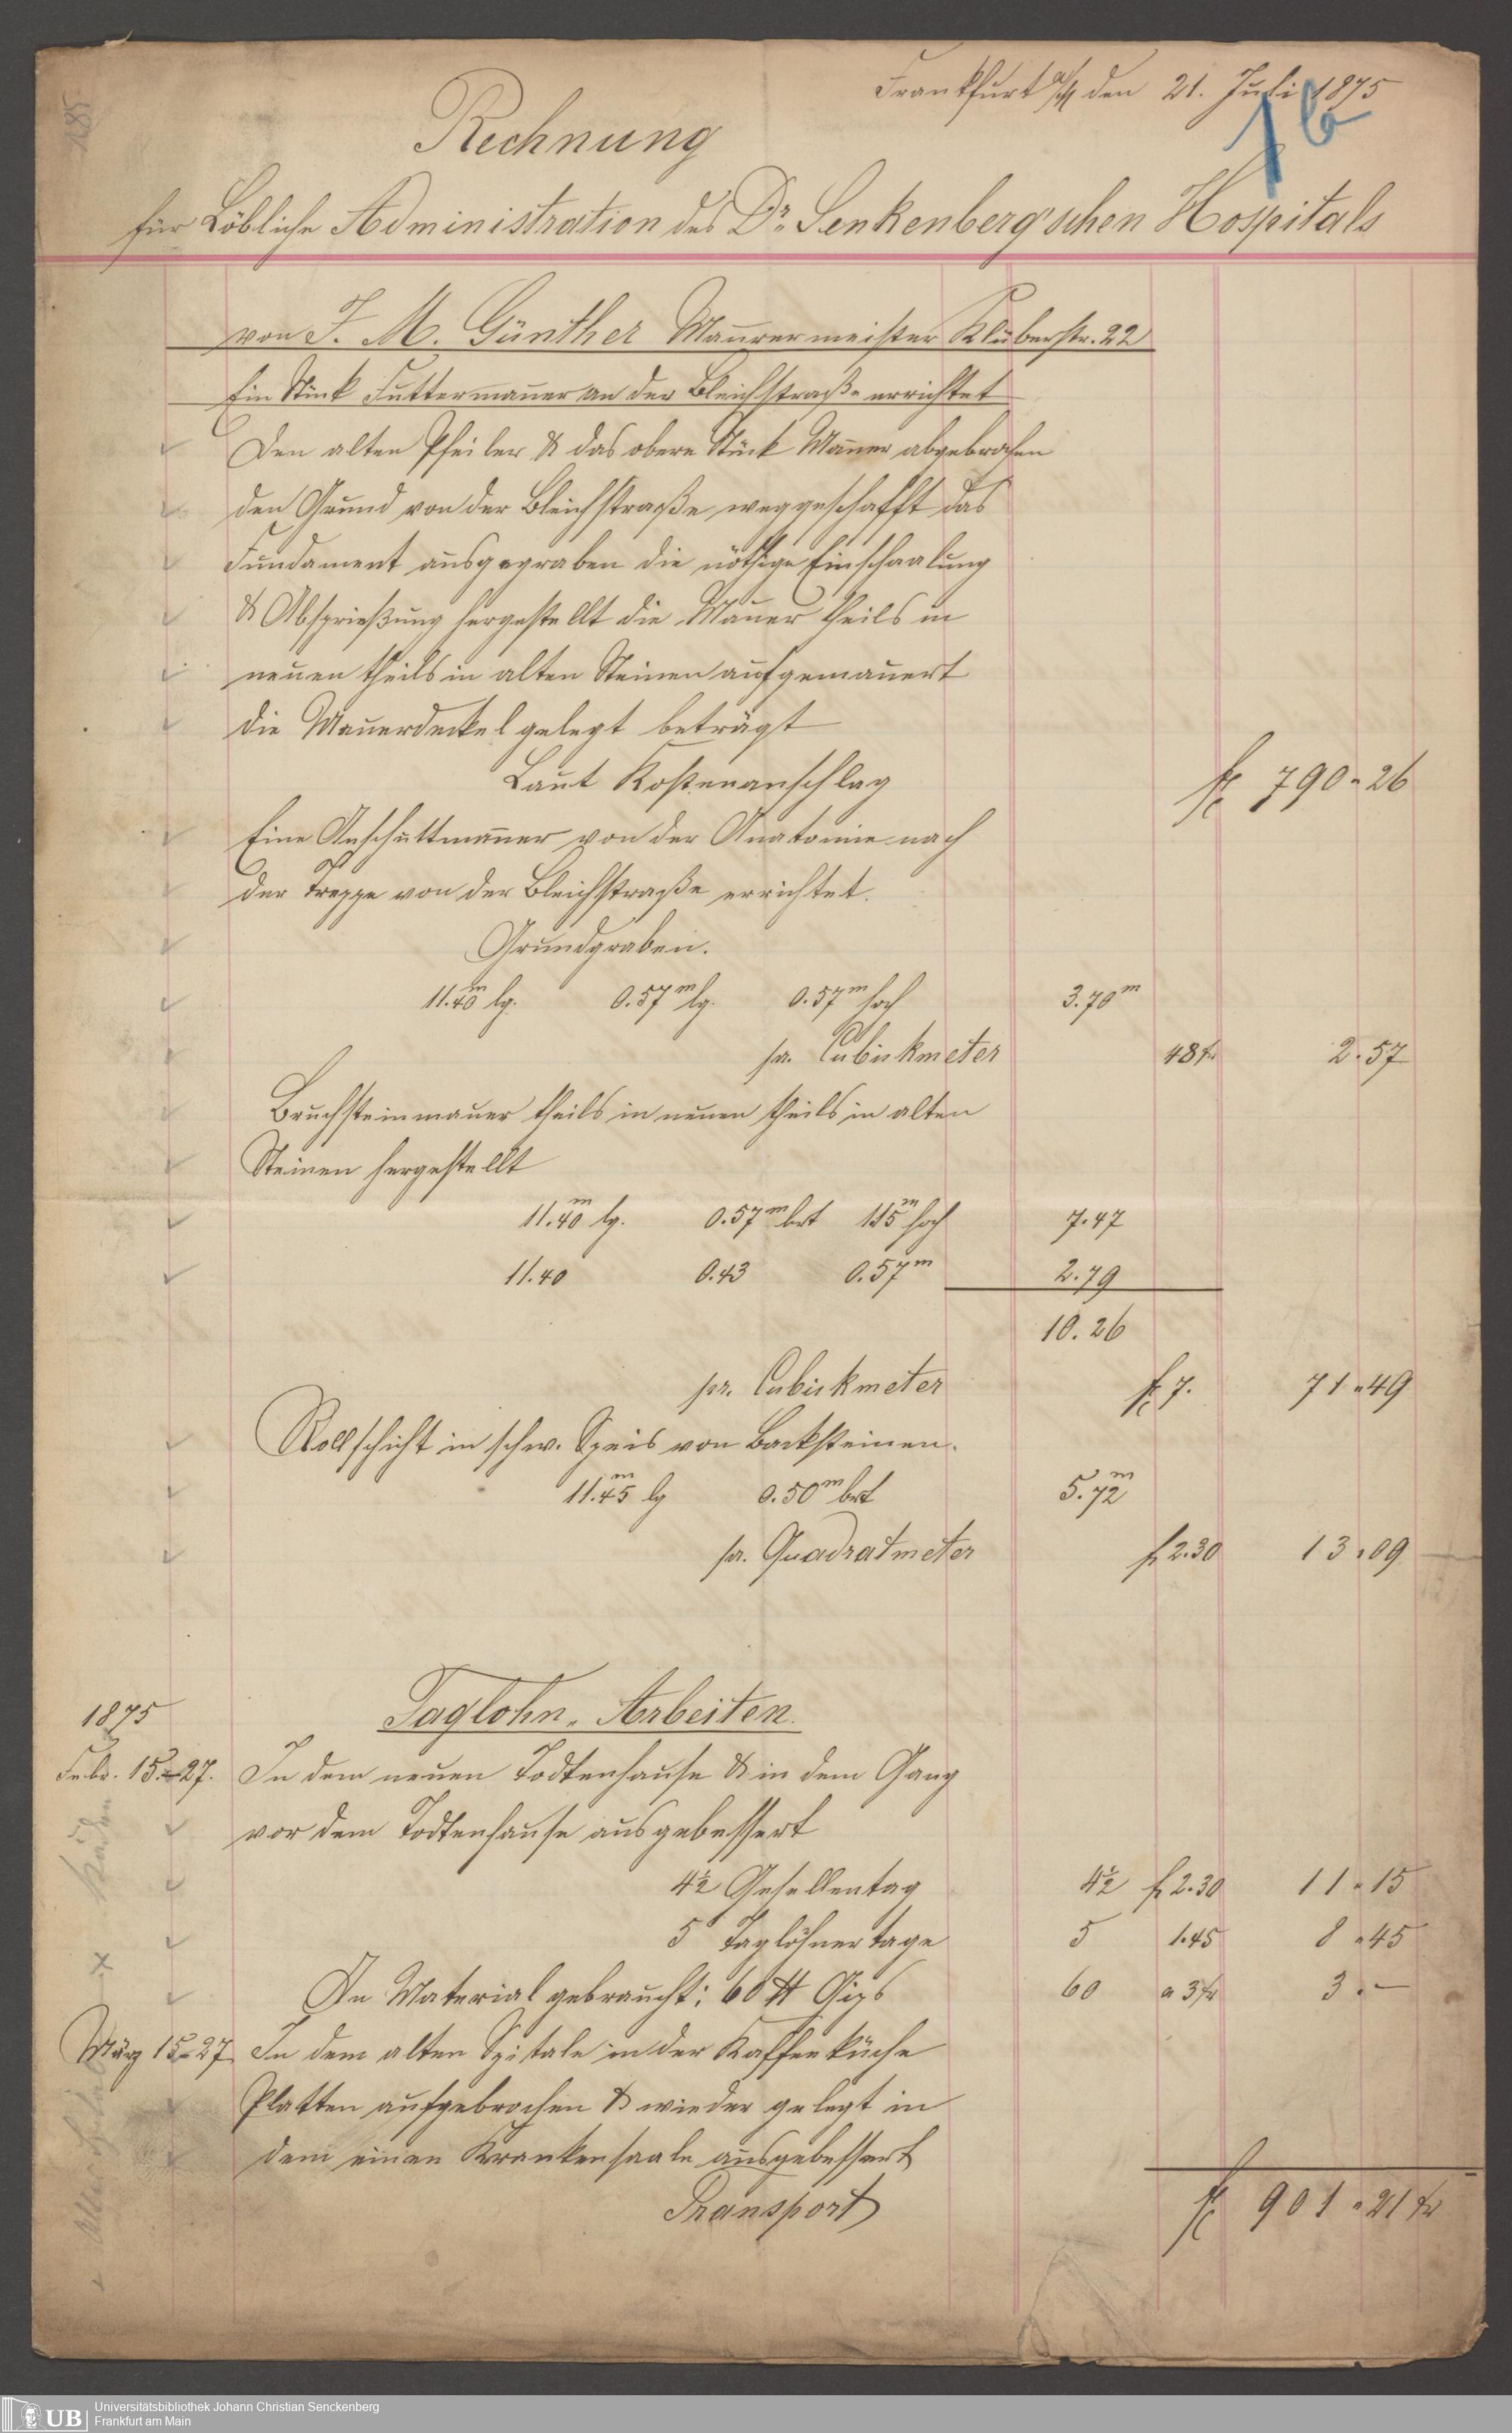 185
Frankfurt a/M den 21. Juli 1875
16
Rechnung
für Löbliche Administration des Dr. Senkenberg'schen Hospitals
von J. M. Günther Maurermeister Klüberstr. 22
Ein Stück Futtermauer an der Bleichstraße errichtet
Den alten Pfeiler & das obere Stück Mauer abgebrochen
den Grund von der Bleichstraße weggeschafft das
Fundament ausgegraben die nöthige Einschaalung
& Absprießung hergestellt die Mauer theils in
neuen theils in alten Steinen aufgemauert
die Mauerdeckel gelegt beträgt
Laut Kostenanschlag fl 790 " 26
Eine Anschuttmauer von der Anatomie nach
der Treppe von der Bleichstraße errichtet.
Grundgraben.
11.40 m lg. 0.57 m lg. 0.57 m hoch 3.70 m
pr. Cubickmeter 48 kr 2 " 57
Bruchsteinmauer theils in neuen theils in alten
Steinen hergestellt
11.40 m lg. 0.57 m brt 1.15 m hoch 7.47
11.40 0.43 0.57 m 2.79
10.26
pr. Cubickmeter fl 7. 71 " 49
Rollschicht in schw. Speis von Backsteinen.
11.45 m lg 0.50 m brt 5.72 m
pr. Quadratmeter fl 2.30 13 " 09
Taglohn-Arbeiten.
1875
Febr. 15-27. In dem neuen Todtenhause & in dem Gang
vor dem Todtenhause ausgebessert
4½ Gesellentag 4½ fl 2.30 11 " 15
5 Taglöhnertage 5 1.45 8 " 45
An Material gebraucht: 60 ℔ Gips 60 a 3 kr 3 " —
März 15-27 In dem alten Spitale in der Kaffeeküche
Platten aufgebrochen & wieder gelegt in
dem einen Krankensaale ausgebessert
Transport fl 901 " 21 kr
UB
Universitätsbibliothek Johann Christian Senckenberg
Frankfurt am Main